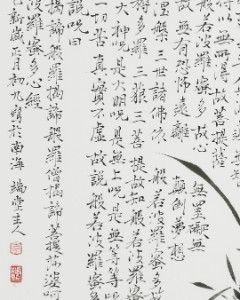 得以無所得故菩提薩
般若波羅蜜多故心無罣礙無
故無有恐怖遠離顛倒夢想
涅槃三世諸佛依般若波羅蜜多
多羅三藐三菩提故知般若波羅蜜
大神咒是大明咒是無上咒是無等等咒
一切苦真實不虛故說般若波羅蜜多
說咒曰
揭諦般羅揭諦般羅僧揭諦菩提娑婆訶
若波羅蜜多心經
新歲正月初九 於南海 堂主人